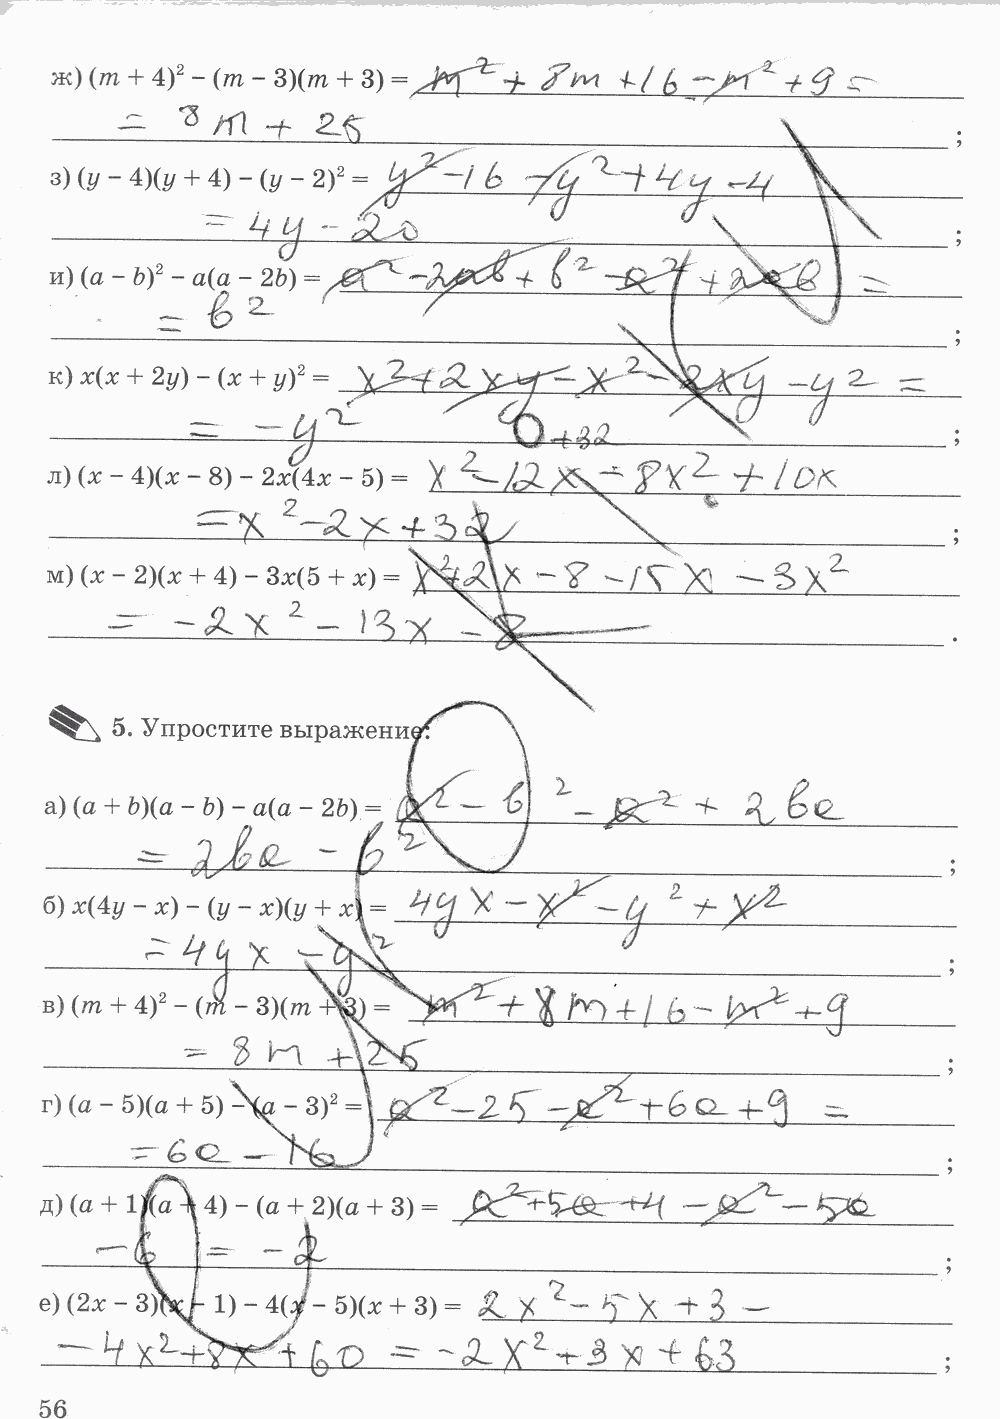 ж) (m + 4)² − (m − 3)(m + 3) = m² + 8m + 16 − m² + 9 =
= 8m + 25 ;
з) (y − 4)(y + 4) − (y − 2)² = y² − 16 − y² + 4y − 4
= 4y − 20 ;
и) (a − b)² − a(a − 2b) = a² − 2ab + b² − a² + 2ab =
= b² ;
к) x(x + 2y) − (x + y)² = x² + 2xy − x² − 2xy − y² =
= −y² ;
+32
л) (x − 4)(x − 8) − 2x(4x − 5) = x² − 12x − 8x² + 10x
= x² − 2x + 32 ;
м) (x − 2)(x + 4) − 3x(5 + x) = x² + 2x − 8 − 15x − 3x²
= −2x² − 13x − 8 .
5. Упростите выражение:
а) (a + b)(a − b) − a(a − 2b) = a² − b² − a² + 2ba
= 2ba − b² ;
б) x(4y − x) − (y − x)(y + x) = 4yx − x² − y² + x²
= 4yx − y² ;
в) (m + 4)² − (m − 3)(m + 3) = m² + 8m + 16 − m² + 9
= 8m + 25 ;
г) (a − 5)(a + 5) − (a − 3)² = a² − 25 − a² + 6a + 9 =
= 6a − 16 ;
д) (a + 1)(a + 4) − (a + 2)(a + 3) = a² + 5a + 4 − a² − 5a
− 6 = −2 ;
е) (2x − 3)(x − 1) − 4(x − 5)(x + 3) = 2x² − 5x + 3 −
− 4x² + 8x + 60 = −2x² + 3x + 63 ;
56